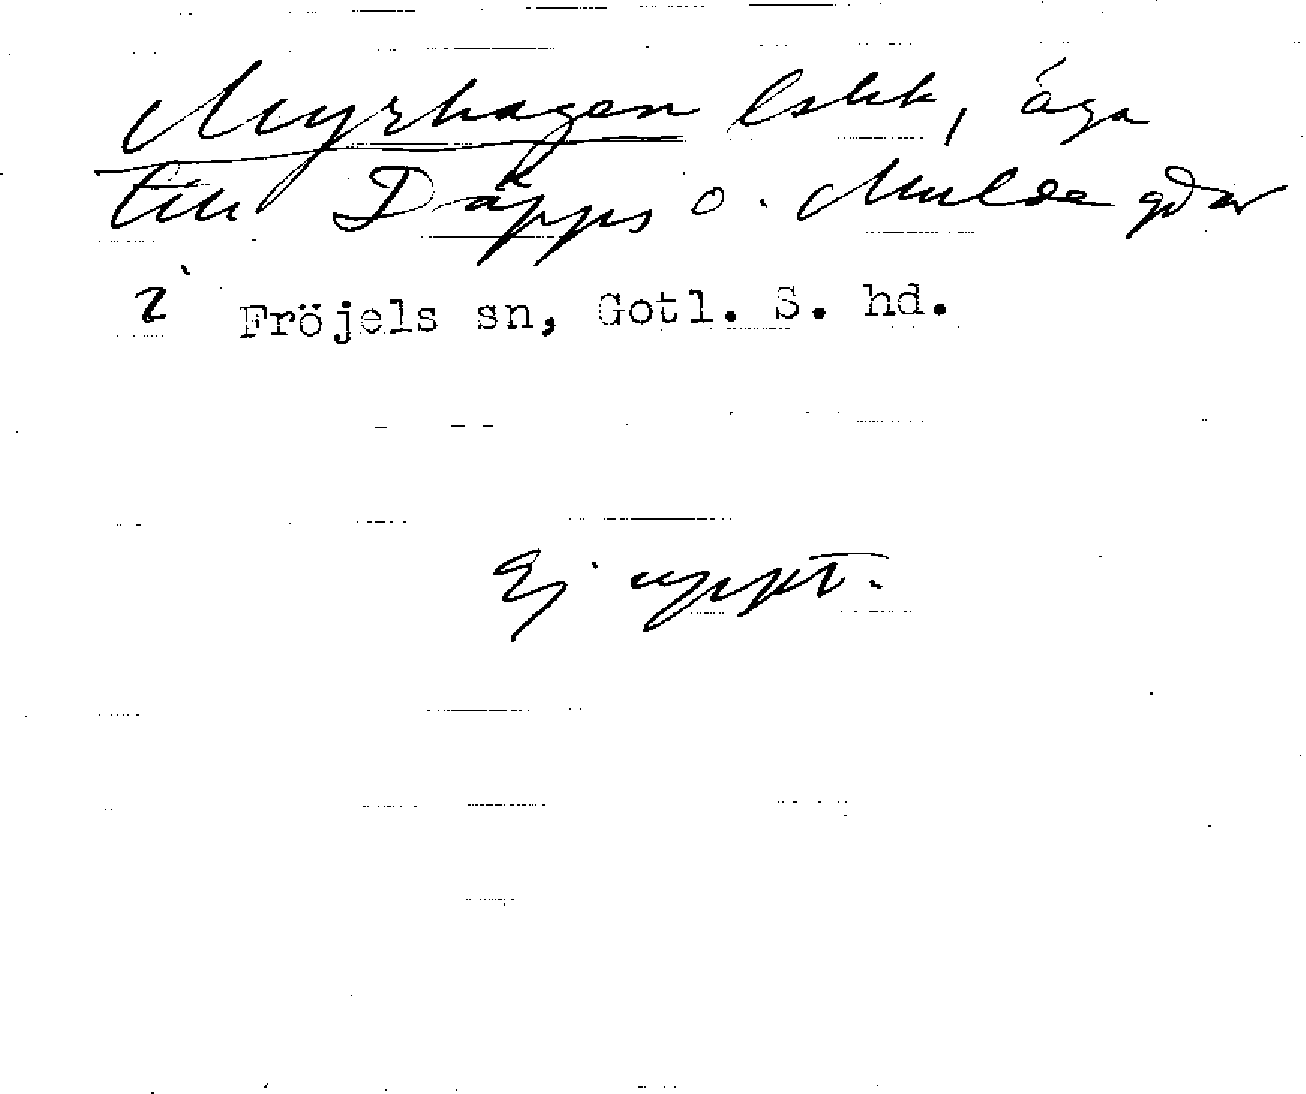 Myrhagen lshk, äga
till Däpps o. Mulde gdar
i Fröjels sn, Gotl. S. hd.
Ej uppt.